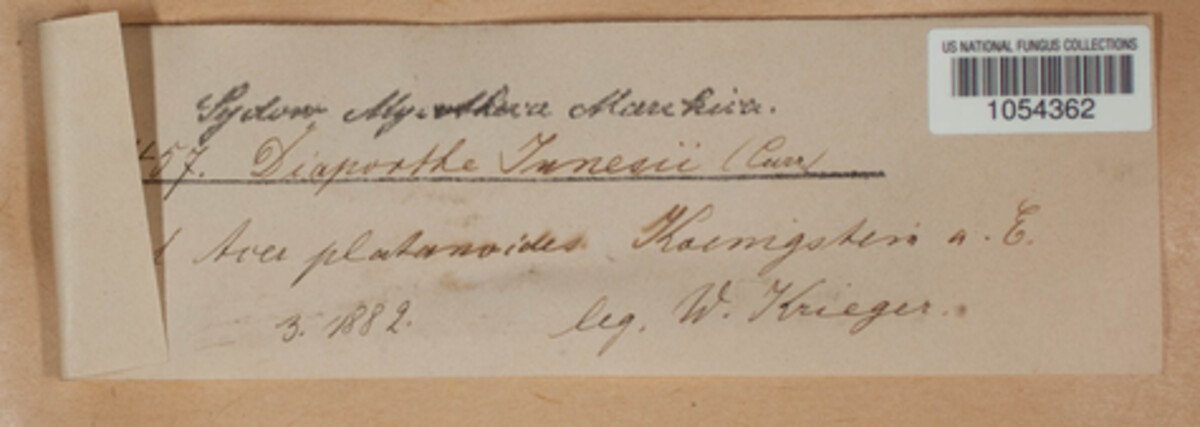 US NATIONAL FUNGUS COLLECTIONS
1054362
Sydow Mycotheca Marchica.
457. Diaporthe Innesii (Curr)
Acer platanoides Koenigstein a. E.
3. 1882. leg. W. Krieger.